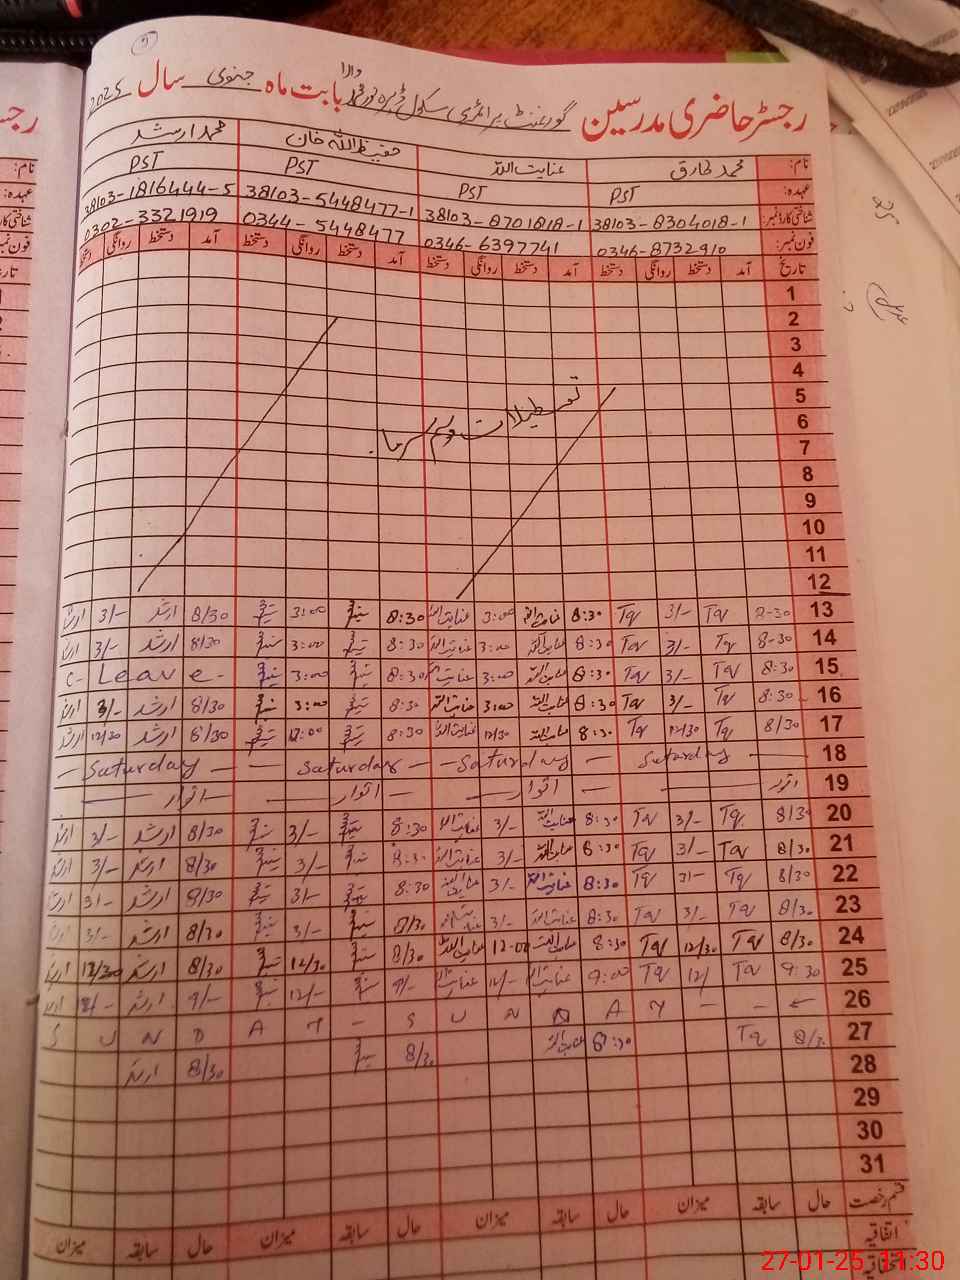 رجسٹر حاضری مدرسین گورنمنٹ پرائمری سکول ڈیرہ نور محمد والا بابت ماہ جنوری سال 2025
نام: محمد طارق عنایت اللہ حفیظ اللہ خان محمد ارشد
عہدہ: PST PST PST PST
شناختی کارڈ نمبر: 38103-8304018-1 38103-8701818-1 38103-5448477-1 38103-1816444-5
فون نمبر: 0346-8732910 0346-6397741 0344-5448477 0302-3321919
تاریخ آمد دستخط روانگی دستخط آمد دستخط روانگی دستخط آمد دستخط روانگی دستخط آمد دستخط روانگی دستخط
1
2
3
4
5
6
7
8
9
10
11
12
تعطیلات موسم سرما
13 8-30 Tq 3/- Tq 8:30 عنایت اللہ 3:00 عنایت اللہ 8:30 3:00 8/30 ارشد 3/- ارشد
14 8-30 Tq 3/- Tq 8:30 عنایت اللہ 3:00 عنایت اللہ 8:30 3:00 8/30 ارشد 3/- ارشد
15 8:30 Tq 3/- Tq 8:30 عنایت اللہ 3:00 عنایت اللہ 8:30 3:00 C-Leave-
16 8:30 Tq 3/- Tq 8:30 عنایت اللہ 3:00 عنایت اللہ 8:30 3:00 8/30 ارشد 3/- ارشد
17 8/30 Tq 12/30 Tq 8:30 عنایت اللہ 12/30 عنایت اللہ 8:30 12:00 8/30 ارشد 12/30 ارشد
18 Saturday Saturday Saturday Saturday
19 اتوار اتوار اتوار اتوار
20 8/30 Tq 3/- Tq 8:30 عنایت اللہ 3/- عنایت اللہ 8:30 3/- 8/30 ارشد 3/- ارشد
21 8/30 Tq 3/- Tq 8:30 عنایت اللہ 3/- عنایت اللہ 8:30 3/- 8/30 ارشد 3/- ارشد
22 8/30 Tq 3/- Tq 8:30 عنایت اللہ 3/- عنایت اللہ 8:30 3/- 8/30 ارشد 3/- ارشد
23 8/30 Tq 3/- Tq 8:30 عنایت اللہ 3/- عنایت اللہ 8/30 3/- 8/30 ارشد 3/- ارشد
24 8/30 Tq 12/30 Tq 8:30 عنایت اللہ 12-00 عنایت اللہ 8/30 12/30 8/30 ارشد 12/30 ارشد
25 9:30 Tq 12/ Tq 9:00 عنایت اللہ 12/- عنایت اللہ 9/- 12/- 9/- ارشد ارشد
26 S U N D A Y - S U N D A Y - -
27 8/30 Tq 8:30 عنایت اللہ 8/30 8/30 ارشد
28
29
30
31
قسم رخصت حال سابقہ میزان حال سابقہ میزان حال سابقہ میزان حال سابقہ میزان
اتفاقیہ
27-01-25 11:30